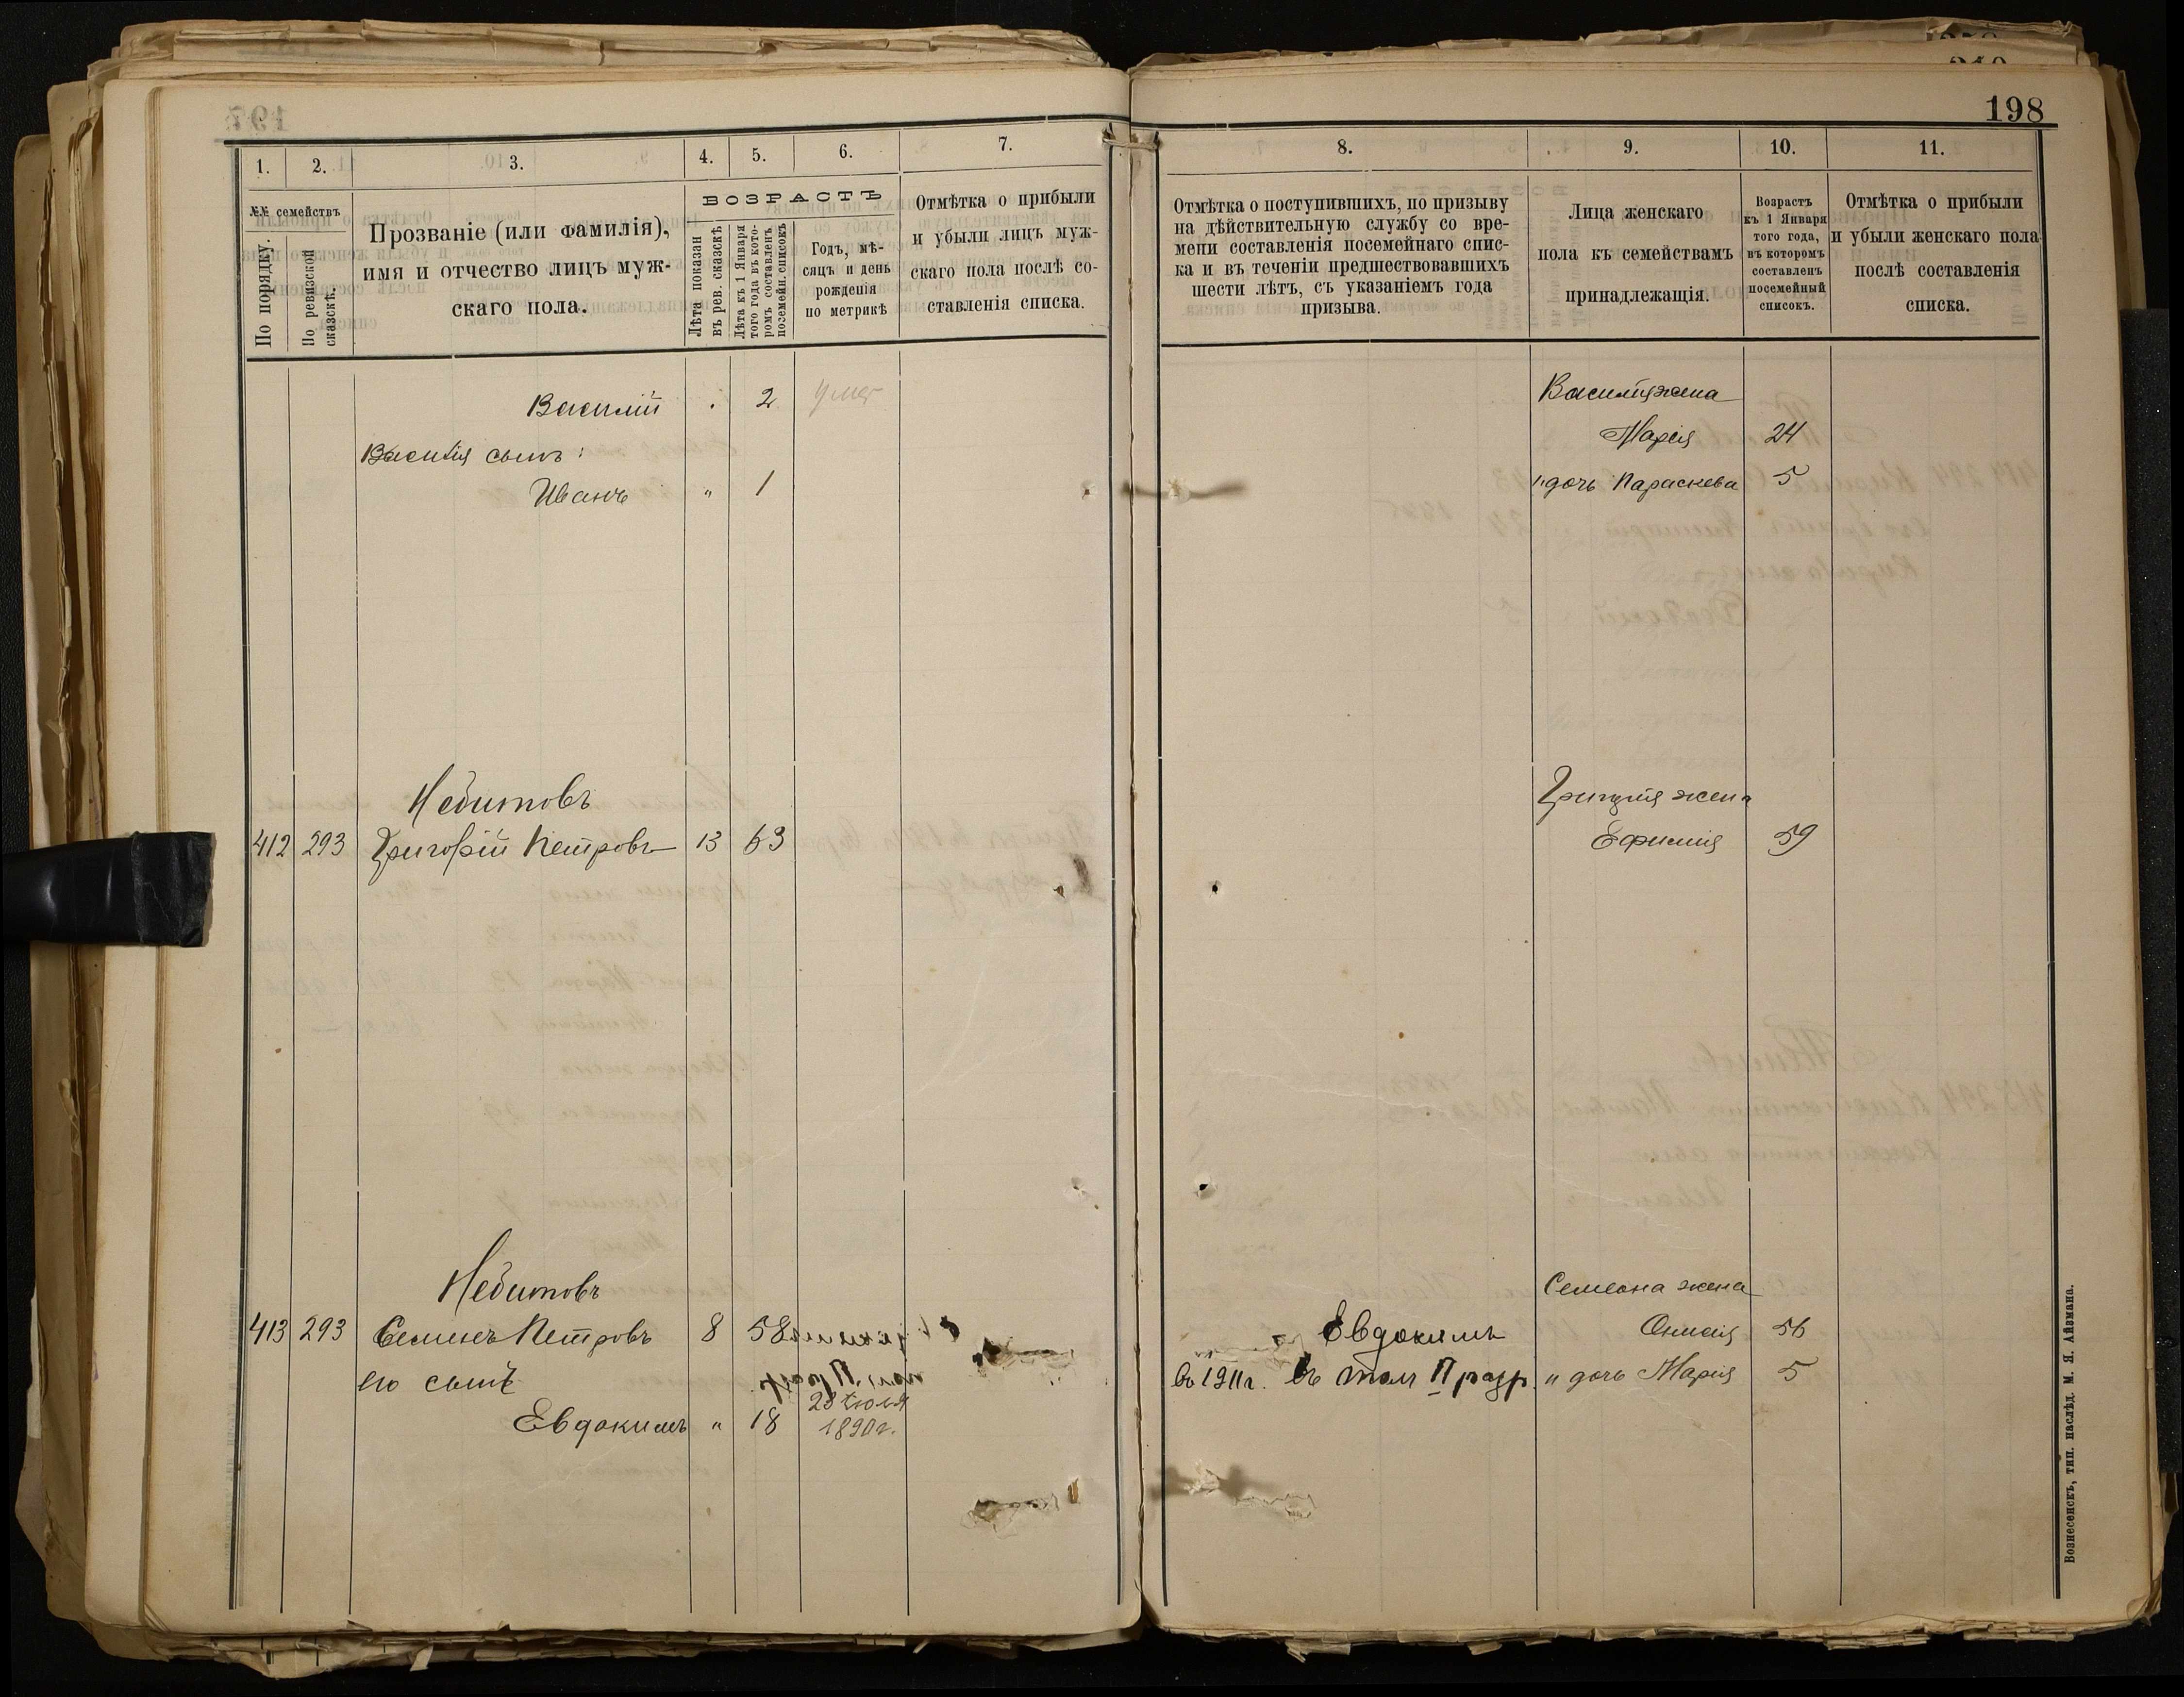 198
1. 2. 3. 4. 5. 6. 7.
№№ семействъ
По порядку.
По ревизской сказскѣ.
Прозваніе (или фамилія),
имя и отчество лицъ муж-
скаго пола.
ВОЗРАСТЪ
Лѣта показан въ рев. сказскѣ
Лѣта къ 1 Января того года въ кото- ромъ составленъ посемейн. списокъ
Годъ, мѣ-
сяцъ и день
рожденія
по метрикѣ
Отмѣтка о прибыли
и убыли лицъ муж-
скаго пола послѣ со-
ставленія списка.
Василій . 2 умер
Василія сынъ:
Иванъ " 1
412 293 Григорій Петровъ 13 63
413 293 Семенъ Петровъ 8 58
его сынъ
Евдокимъ " 18
1890г.
8. 9. 10. 11.
Отмѣтка о поступившихъ, по призыву
на дѣйствительную службу со вре-
мени составленія посемейнаго спис-
ка и въ теченіи предшествовавшихъ
шести лѣтъ, съ указаніемъ года
призыва.
Лица женскаго
пола къ семействамъ
принадлежащія.
Возрастъ
къ 1 Января
того года,
въ которомъ
составленъ
посемейный
списокъ.
Отмѣтка о прибыли
и убыли женскаго пола
послѣ составленія
списка.
Василія жена
Марія 24
" дочь Параскева 5
Григорія жена
Ефимія 59
Семеона жена
Евдокимъ 56
въ 1911г. въ разр. " дочь Марія 5
Вознесенскъ, тип. наслѣд. М. Я. Айзмана.